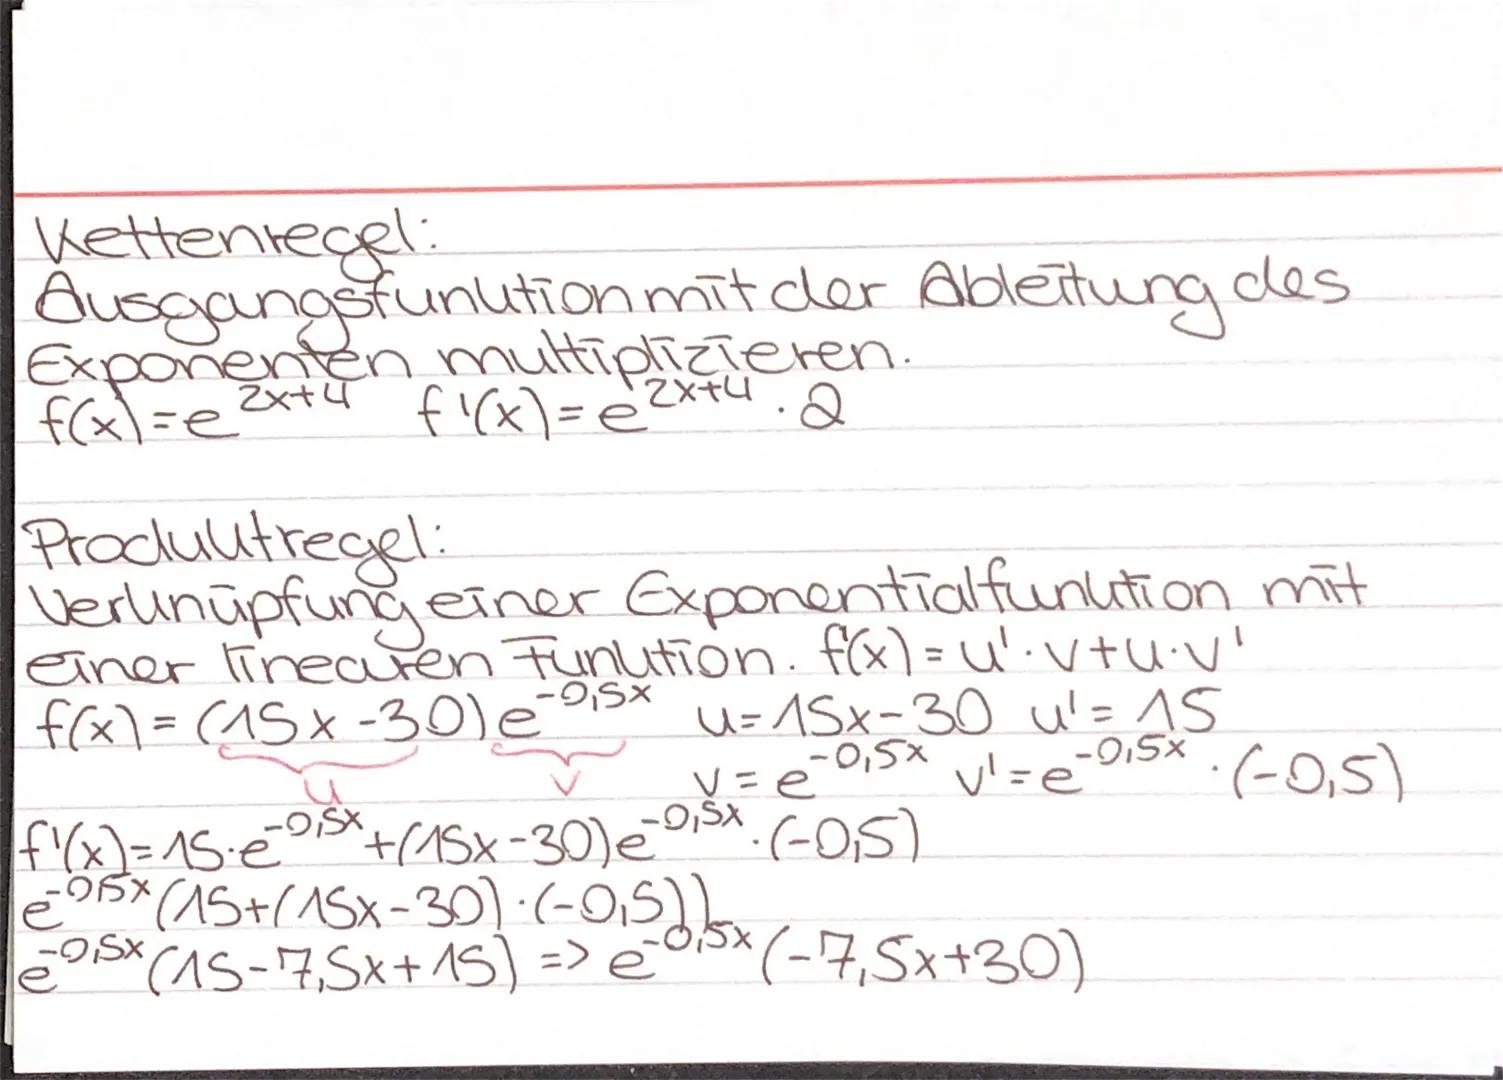 Kettenregel:
Ausgangsfunktion mit der Ableitung des
Exponenten multiplizieren.
f(x)=e^{2x+4} f'(x)=e^{2x+4}·2
Produktregel:
Verknüpfung einer Exponentialfunktion mit
einer linearen Funktion. f'(x)=u'·v+u·v'
f(x)=(15x-30)e^{-0,5x} u=15x-30 u'=15
u v v=e^{-0,5x} v'=e^{-0,5x}·(-0,5)
f'(x)=15·e^{-0,5x}+(15x-30)e^{-0,5x}·(-0,5)
e^{-0,5x}(15+(15x-30)·(-0,5))
e^{-0,5x}(15-7,5x+15) => e^{-0,5x}(-7,5x+30)